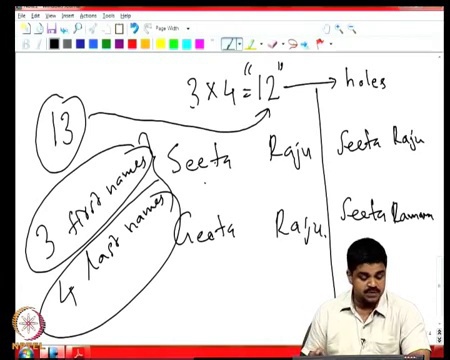 File Edit View Insert Actions Tools Help
Page Width
3 × 4 = "12" → holes
13
3 first names
4 last names
Seeta Raju
Geeta Raju.
Seeta Raju
Seeta Ramana